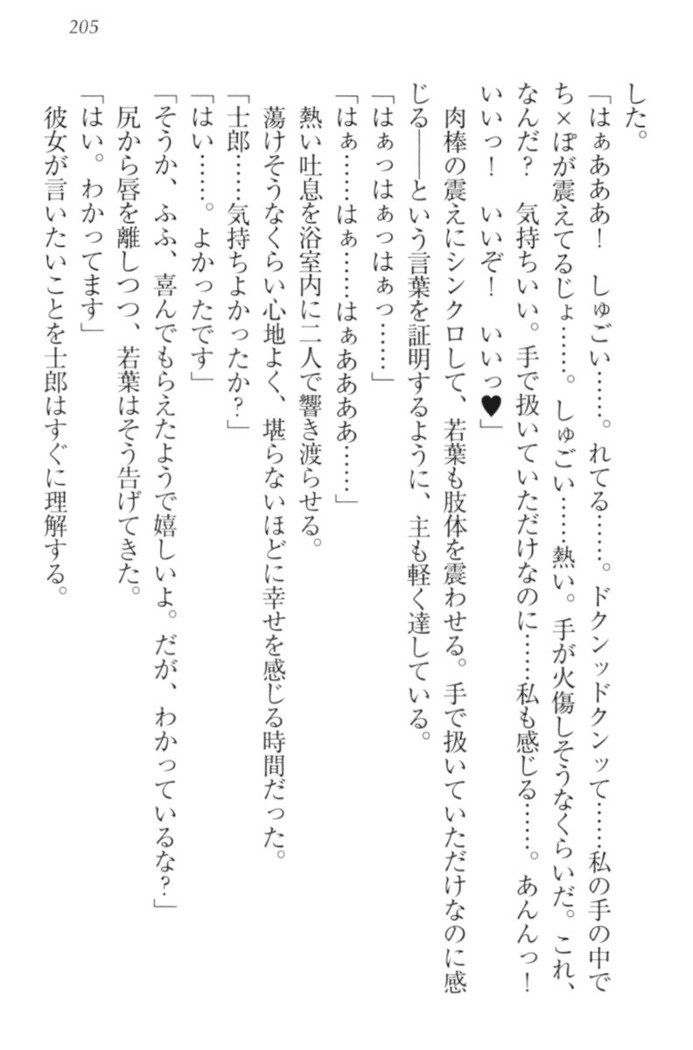 205
した。
「はぁあああ！　しゅごい……。れてる……。ドクンッドクンッて……私の手の中で
ち×ぽが震えてるじょ……。しゅごい……熱い。手が火傷しそうなくらいだ。これ、
なんだ？　気持ちいい。手で扱いていただけなのに……私も感じる……。あんんっ！
いいっ！　いいぞ！　いいっ♥」
　肉棒の震えにシンクロして、若葉も肢体を震わせる。手で扱いていただけなのに感
じる――という言葉を証明するように、主も軽く達している。
「はぁっはぁっはぁっ……」
「はぁ……はぁ……はぁああああ……」
　熱い吐息を浴室内に二人で響き渡らせる。
　蕩けそうなくらい心地よく、堪らないほどに幸せを感じる時間だった。
「士郎……気持ちよかったか？」
「はい……。よかったです」
「そうか、ふふ、喜んでもらえたようで嬉しいよ。だが、わかっているな？」
　尻から唇を離しつつ、若葉はそう告げてきた。
「はい。わかってます」
　彼女が言いたいことを士郎はすぐに理解する。